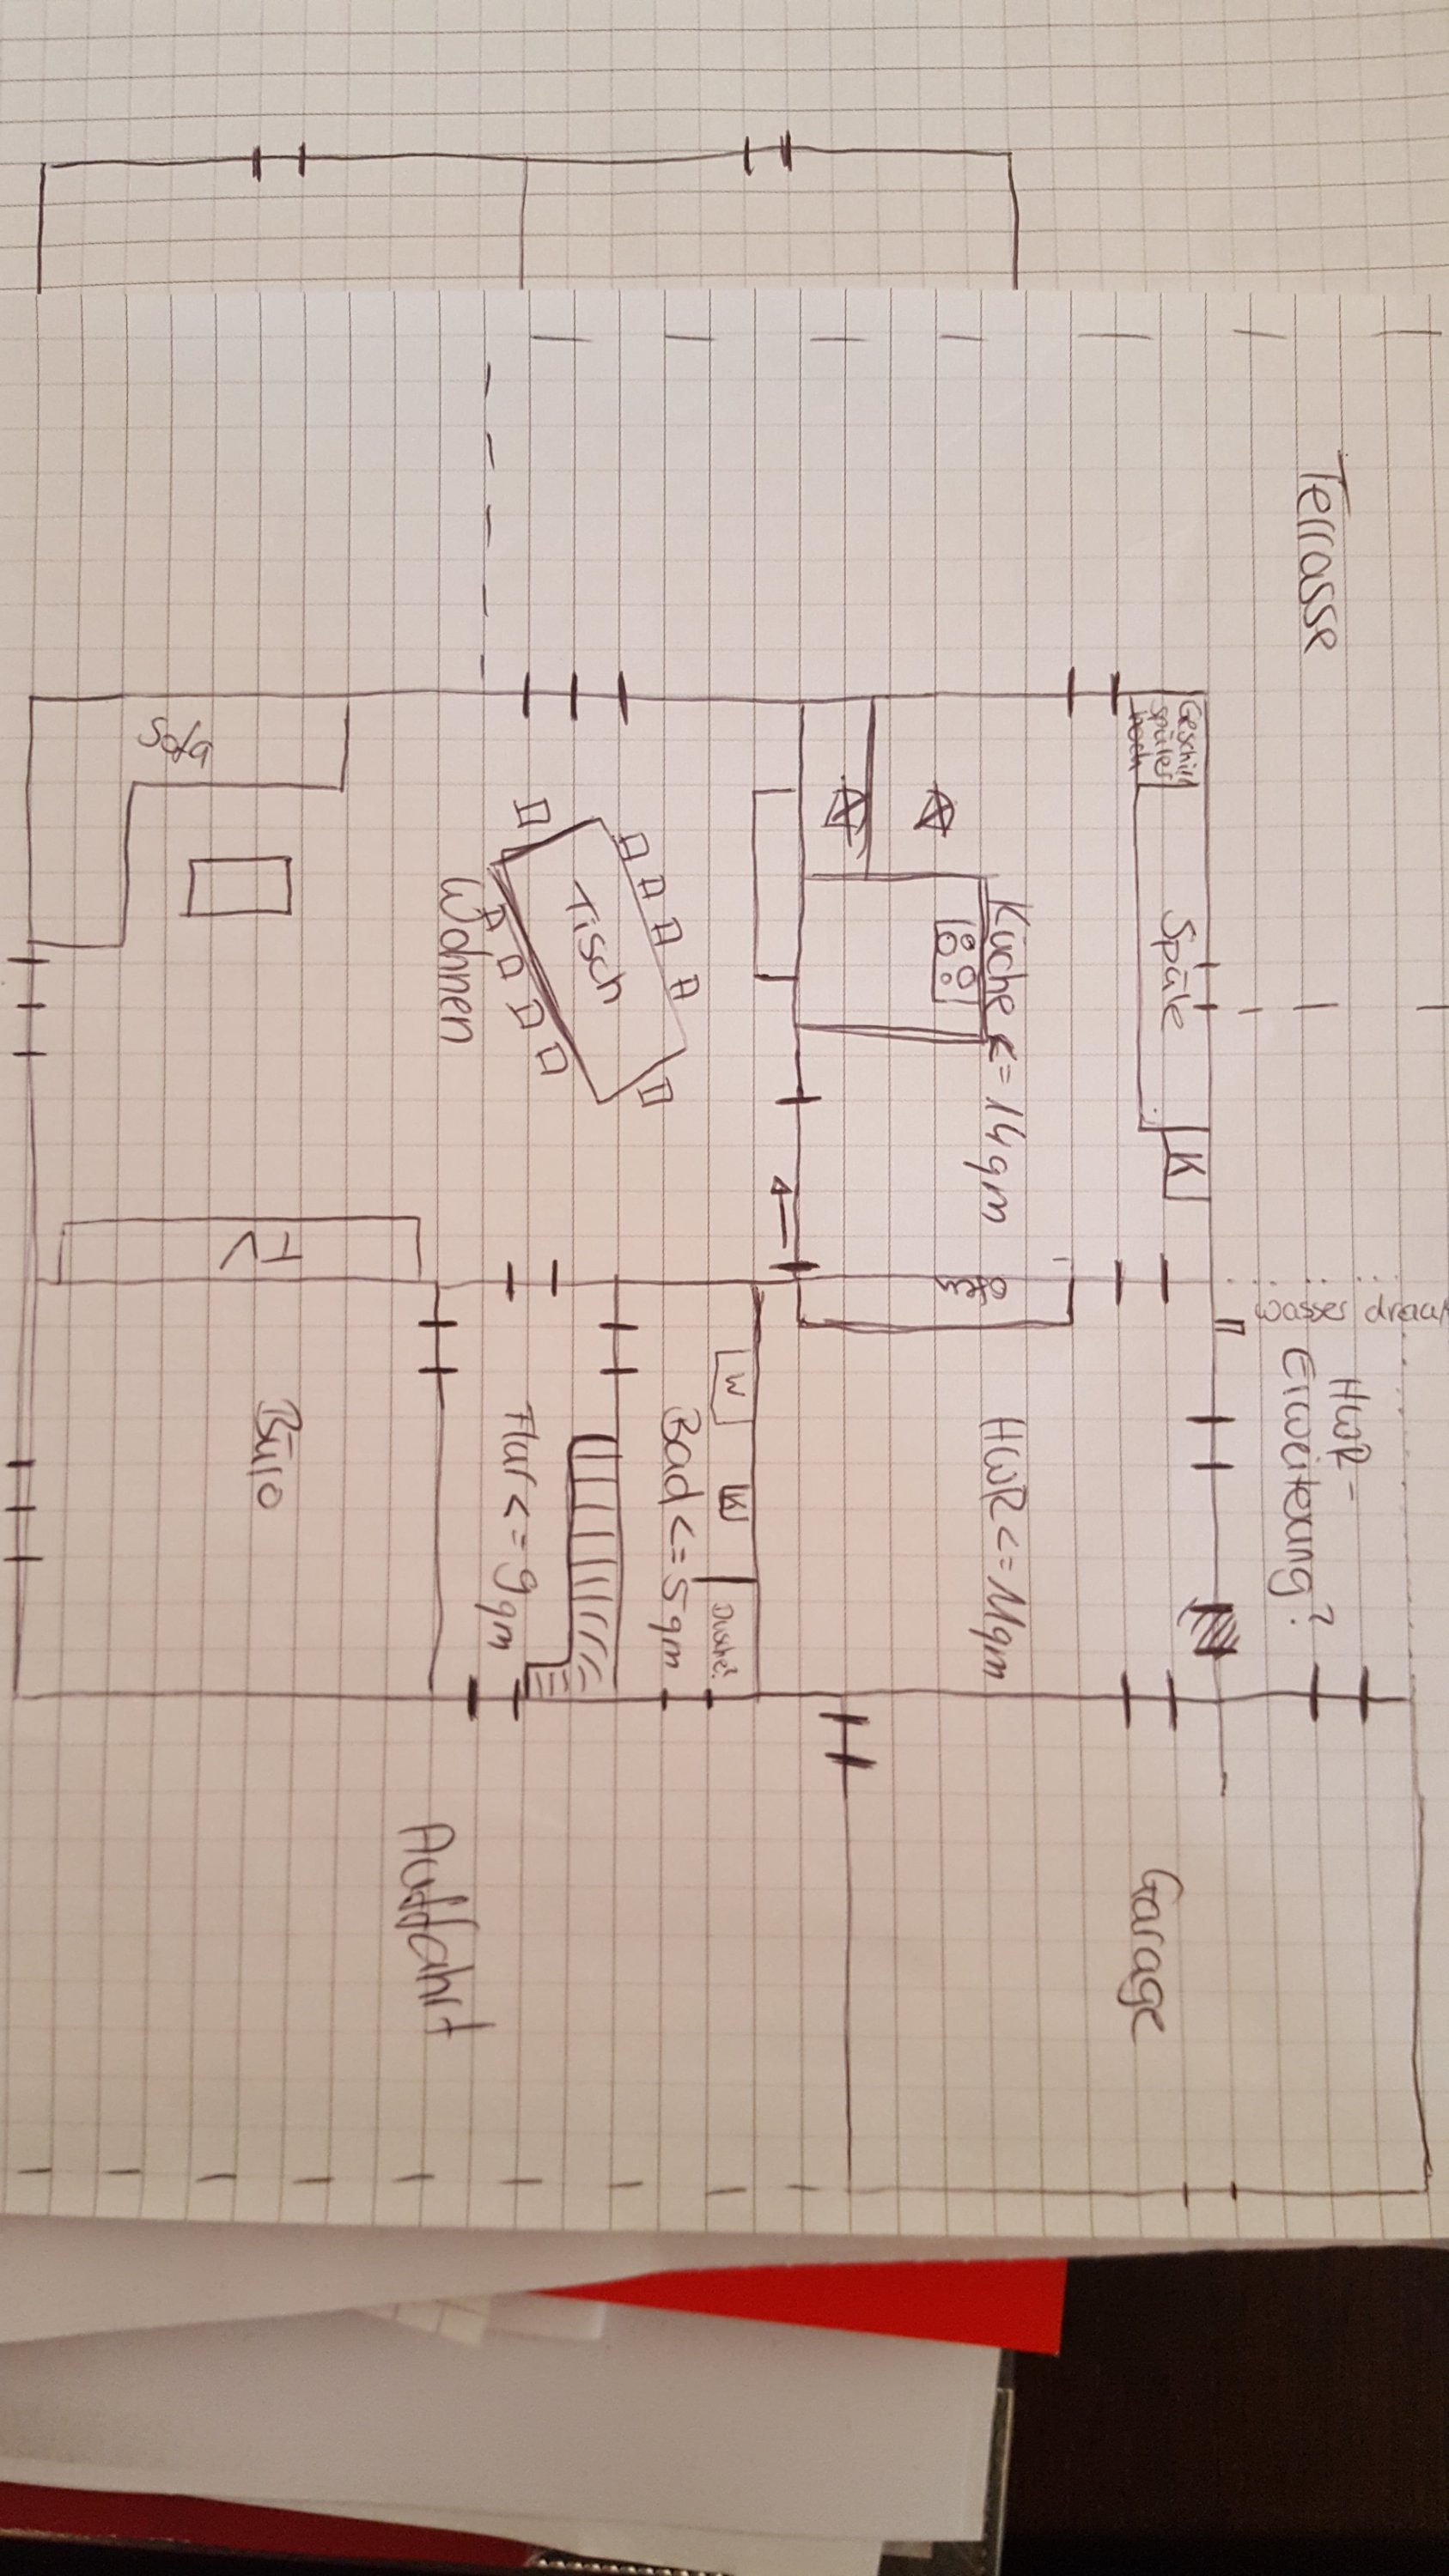 Terrasse
Geschirr
spüler
hoch
Spüle
K
Küche <= 14qm
Ofen
Sofa
Tisch
Wohnen
TV
wasser
HWR-
Erweiterung?
HWR <= 11qm
W
W
Dusche?
Bad <= 5qm
Flur <= 9qm
Büro
Garage
Auffahrt